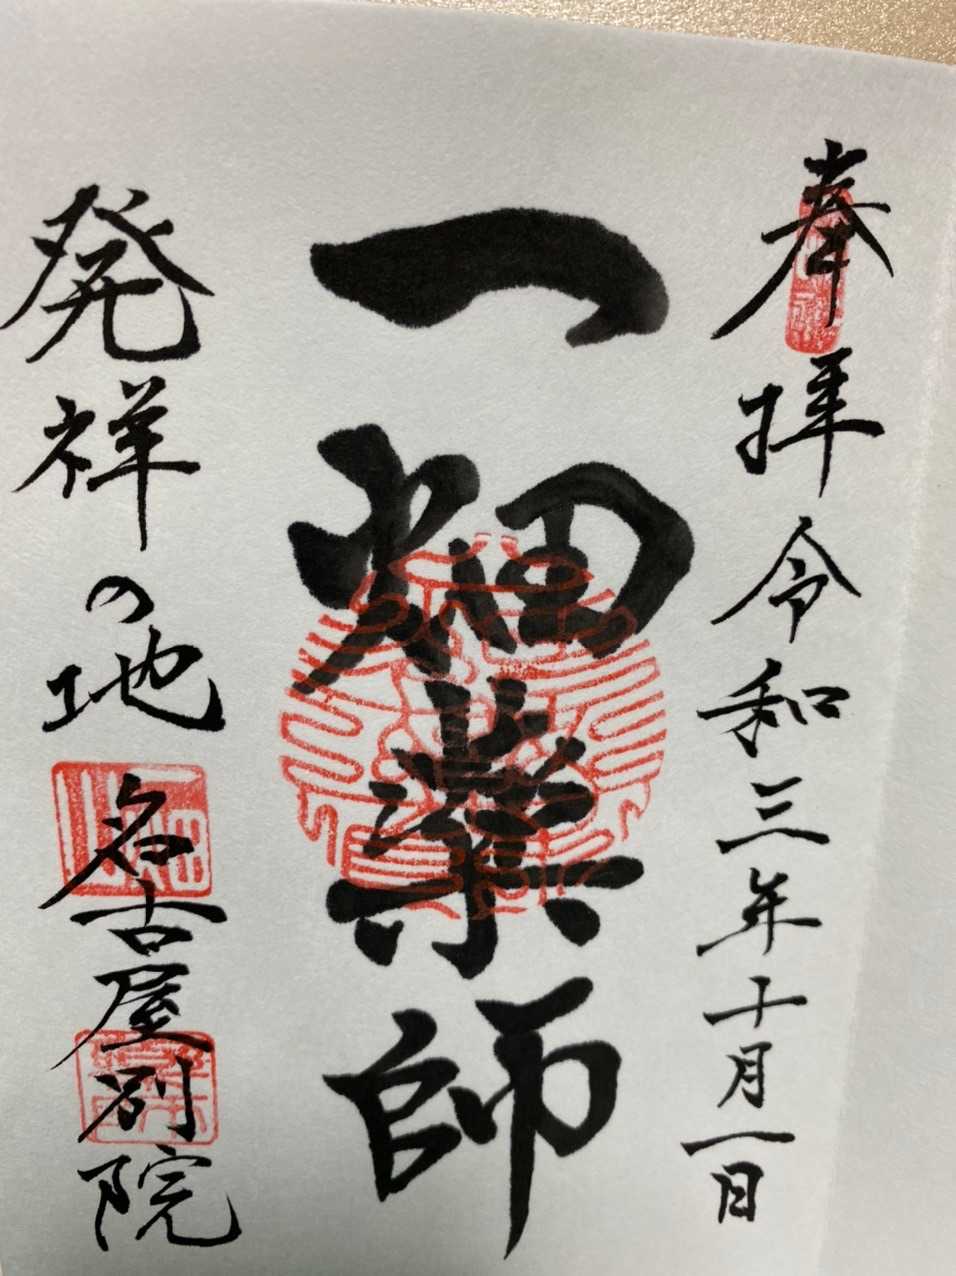 奉拝 令和三年十月一日
一畑薬師
発祥の地 名古屋別院